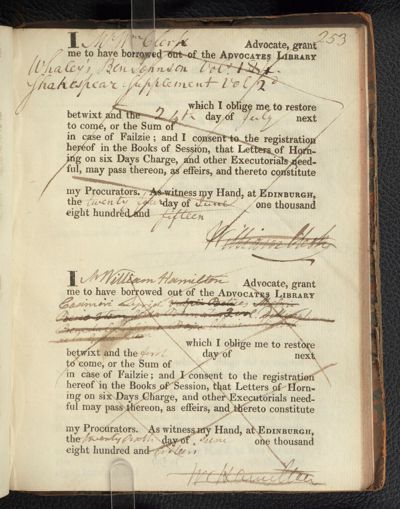 253
I Mr Wm Clerk Advocate, grant
me to have borrowed out of the ADVOCATES LIBRARY
Whaley's Ben Johnson Vol. 1st
Shakespear Supplement Vol 2d
which I oblige me to restore
betwixt and the 24th day of July next
to come, or the Sum of
in case of Failzie; and I consent to the registration
hereof in the Books of Session, that Letters of Horn-
ing on six Days Charge, and other Executorials need-
ful, may pass thereon, as effeirs, and thereto constitute
my Procurators. As witness my Hand, at EDINBURGH,
the twenty day of June one thousand
eight hundred and fifteen
William Clerk
I Mr William Hamilton Advocate, grant
me to have borrowed out of the ADVOCATES LIBRARY
which I oblige me to restore
betwixt and the first day of next
to come, or the Sum of
in case of Failzie; and I consent to the registration
hereof in the Books of Session, that Letters of Horn-
ing on six Days Charge, and other Executorials need-
ful may pass thereon, as effeirs, and thereto constitute
my Procurators. As witness my Hand, at EDINBURGH,
the twenty day of June one thousand
eight hundred and fifteen
Wm Hamilton